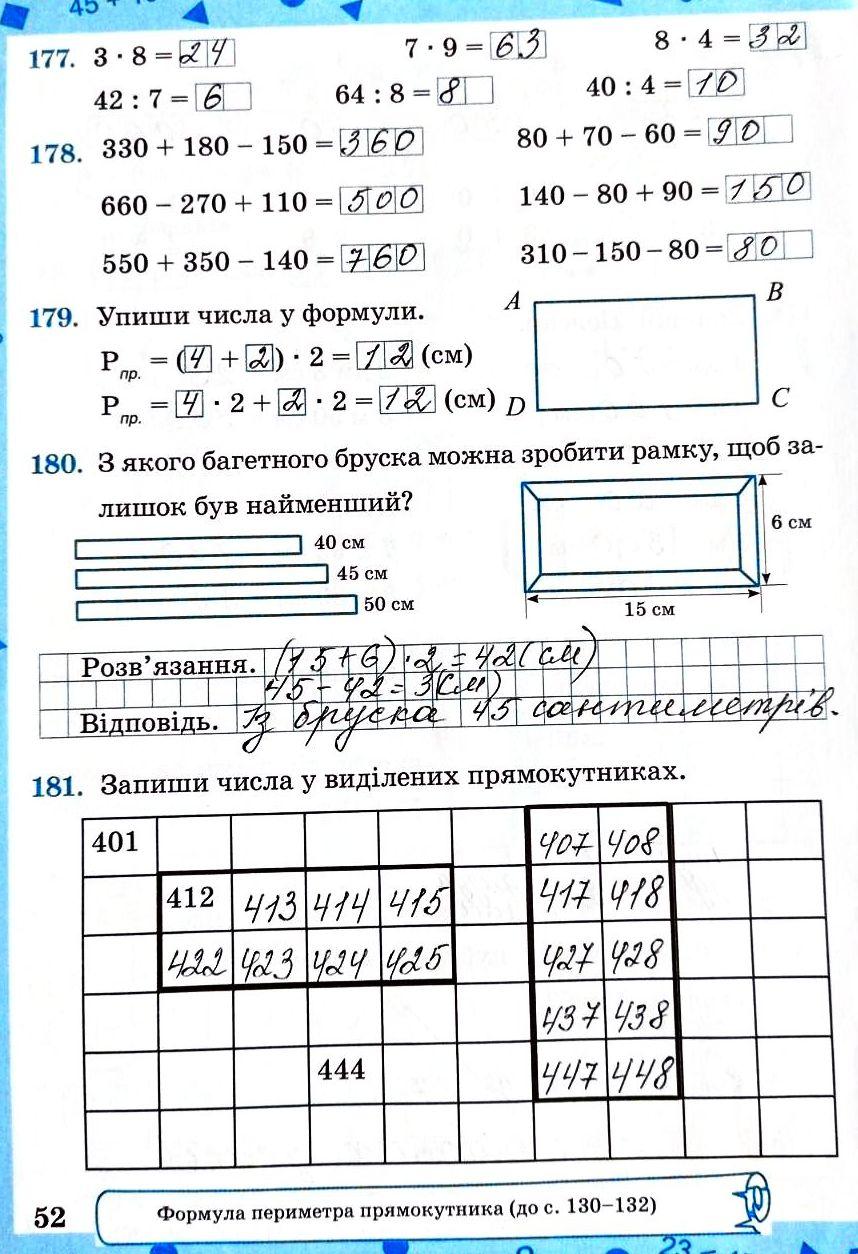 45 +
177. 3 · 8 = 24 7 · 9 = 63 8 · 4 = 32
42 : 7 = 6 64 : 8 = 8 40 : 4 = 10
178. 330 + 180 − 150 = 360 80 + 70 − 60 = 90
660 − 270 + 110 = 500 140 − 80 + 90 = 150
550 + 350 − 140 = 760 310 − 150 − 80 = 80
179. Упиши числа у формули.
A B
Pпр. = (4 + 2) · 2 = 12 (см)
Pпр. = 4 · 2 + 2 · 2 = 12 (см) D C
180. З якого багетного бруска можна зробити рамку, щоб за-
лишок був найменший?
40 см
45 см
50 см
6 см
15 см
Розв’язання. (15+6)·2=42(см)
45−42=3(см)
Відповідь. Із бруска 45 сантиметрів.
181. Запиши числа у виділених прямокутниках.
401 407 408
412 413 414 415 417 418
422 423 424 425 427 428
437 438
444 447 448
52 Формула периметра прямокутника (до с. 130–132)
23